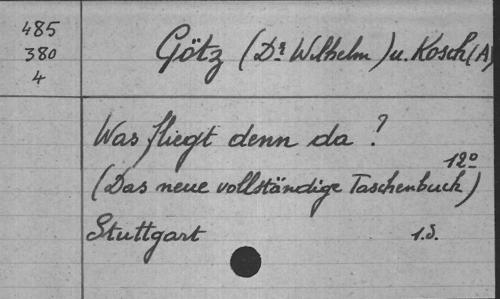 485
380
4
Götz (Dr Wilhelm) u. Kosch (A)
Was fliegt denn da?
12º
(Das neue vollständige Taschenbuch)
Stuttgart s.d.